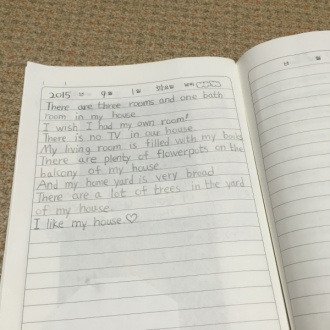 2015 9 1
There are three rooms and one bath
room in my house.
I wish I had my own room!
There is no TV in our house.
My living room is filled with my books
There are plenty of flowerpots on the
balcony of my house.
And my home yard is very broad.
There are a lot of trees in the yard
of my house.
I like my house.♡